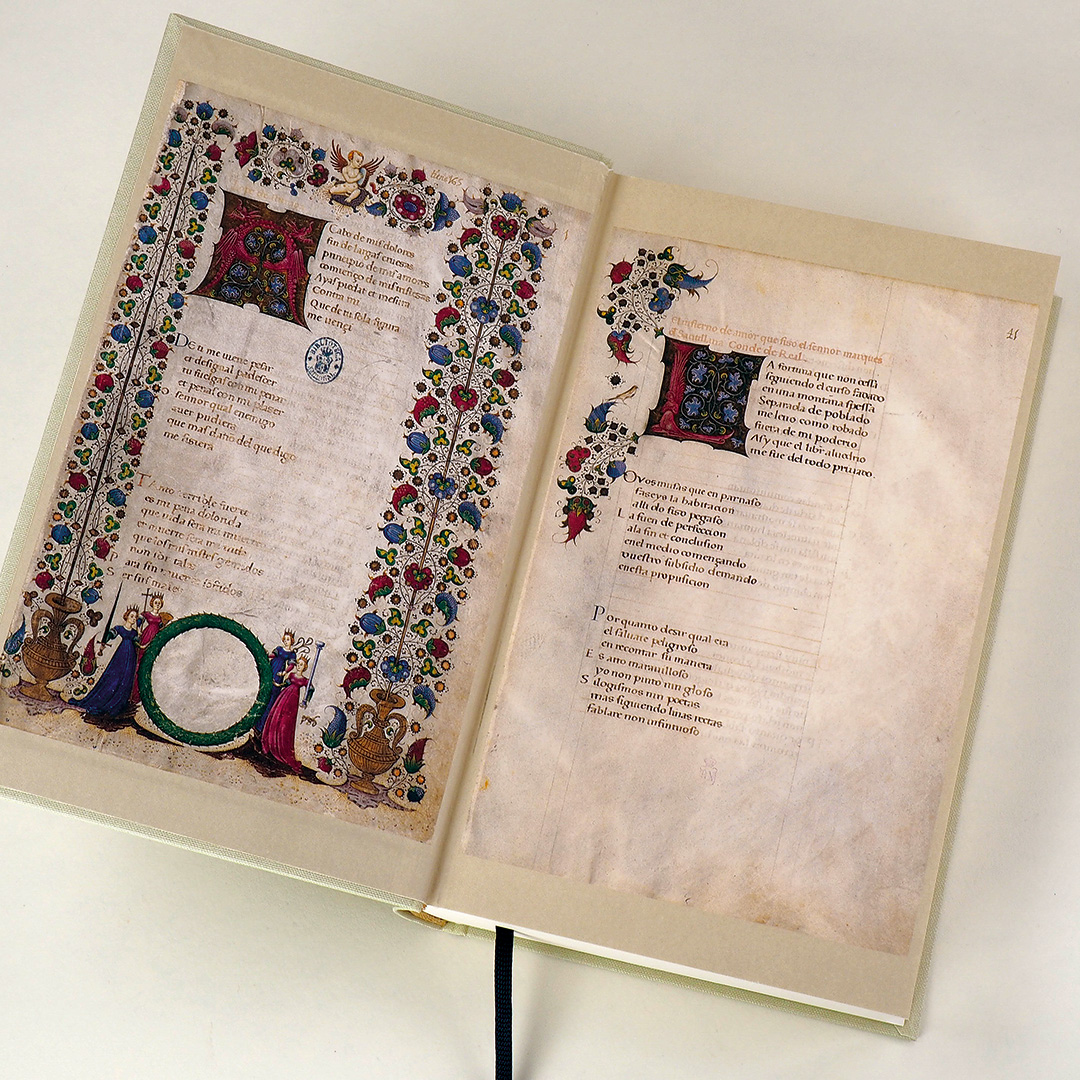 A
Cabo de mis dolores
fin de largas cruezas
principio de mis amores
comienço de mis tristezas
Ayas piedat et mesura
Contra mi
Que de tu sola figura
me vençi
DEn me ueno pesar
et desigual padesçer
tu fuelgas con mi penar
et penas con mi plazer
sennor qual enemigo
auer pudiera
que mas danno del que digo
me fisiera
Tanto terrible fuerte
es mi pena
que uida sera mi muerte
gemidos
non los tales
sofridos
El infierno de amor que fiso el sennor marques
d Santillana Conde de Real
21
L
A fortuna que non çessa
siguiendo el curso fadado
en una montanna spessa
Separada de poblado
me leuo como robado
fuera de mi poderio
Asy que el libr aluedrio
me fue del todo priuado.
O vos musas que en parnaso
faseys la habitaçion
alli do fiso pegaso
La fuen de perfecçion
ala fin et conclusion
enel medio començando
vuestro subsidio demando
enesta propusiçion
Por quanto desir qual era
el saluaje peligroso
en recontar su manera
Es acto marauilloso
yo non punto nin gloso
Silogismos nin poetas
mas siguiendo linas rectas
fablare non infintuoso